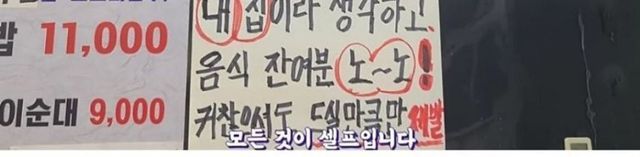 내 집이라 생각하고
밥 11,000
음식 잔여분 노~노!
이순대 9,000
귀찬아서도 드실마큼만 제발
모든 것이 셀프입니다